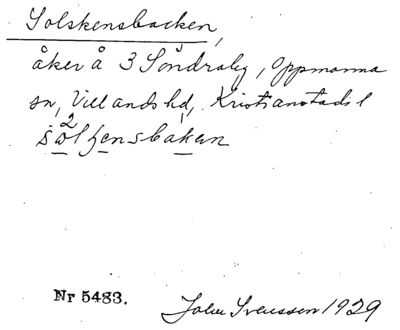 Solskensbacken,
åker å 3 Söndraby, Oppmanna
sn, Villands hd, Kristianstads l
Nr 5483. John Svensson 1929